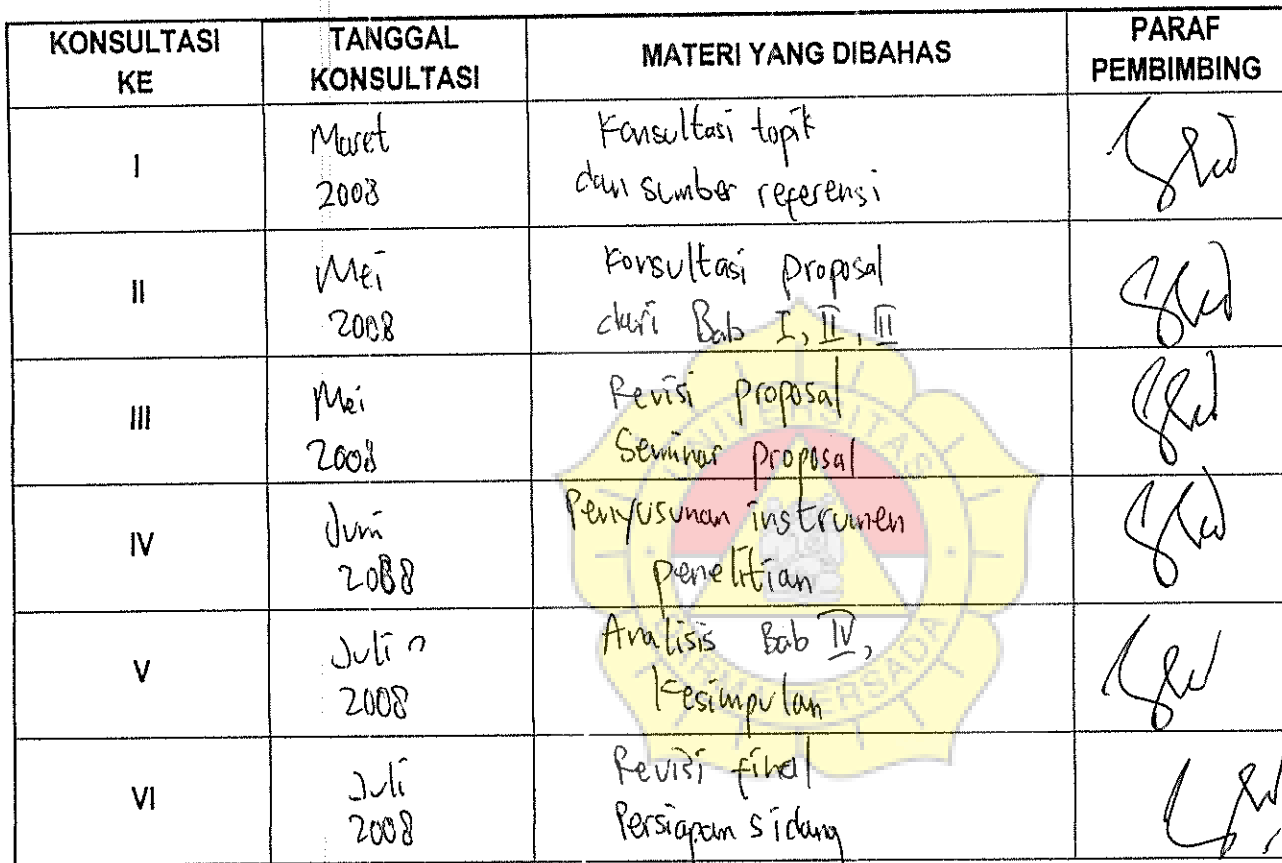 KONSULTASI KE
TANGGAL KONSULTASI
MATERI YANG DIBAHAS
PARAF PEMBIMBING
I
Maret
2008
Konsultasi topik
dan sumber referensi
II
Mei
2008
Konsultasi proposal
dari Bab I, II, III
III
Mei
2008
Revisi proposal
Seminar proposal
IV
Juni
2008
Penyusunan instrumen
penelitian
V
Juli
2008
Analisis Bab IV,
Kesimpulan
VI
Juli
2008
Revisi final
Persiapan sidang
UNIVERSITAS
DARMA PERSADA